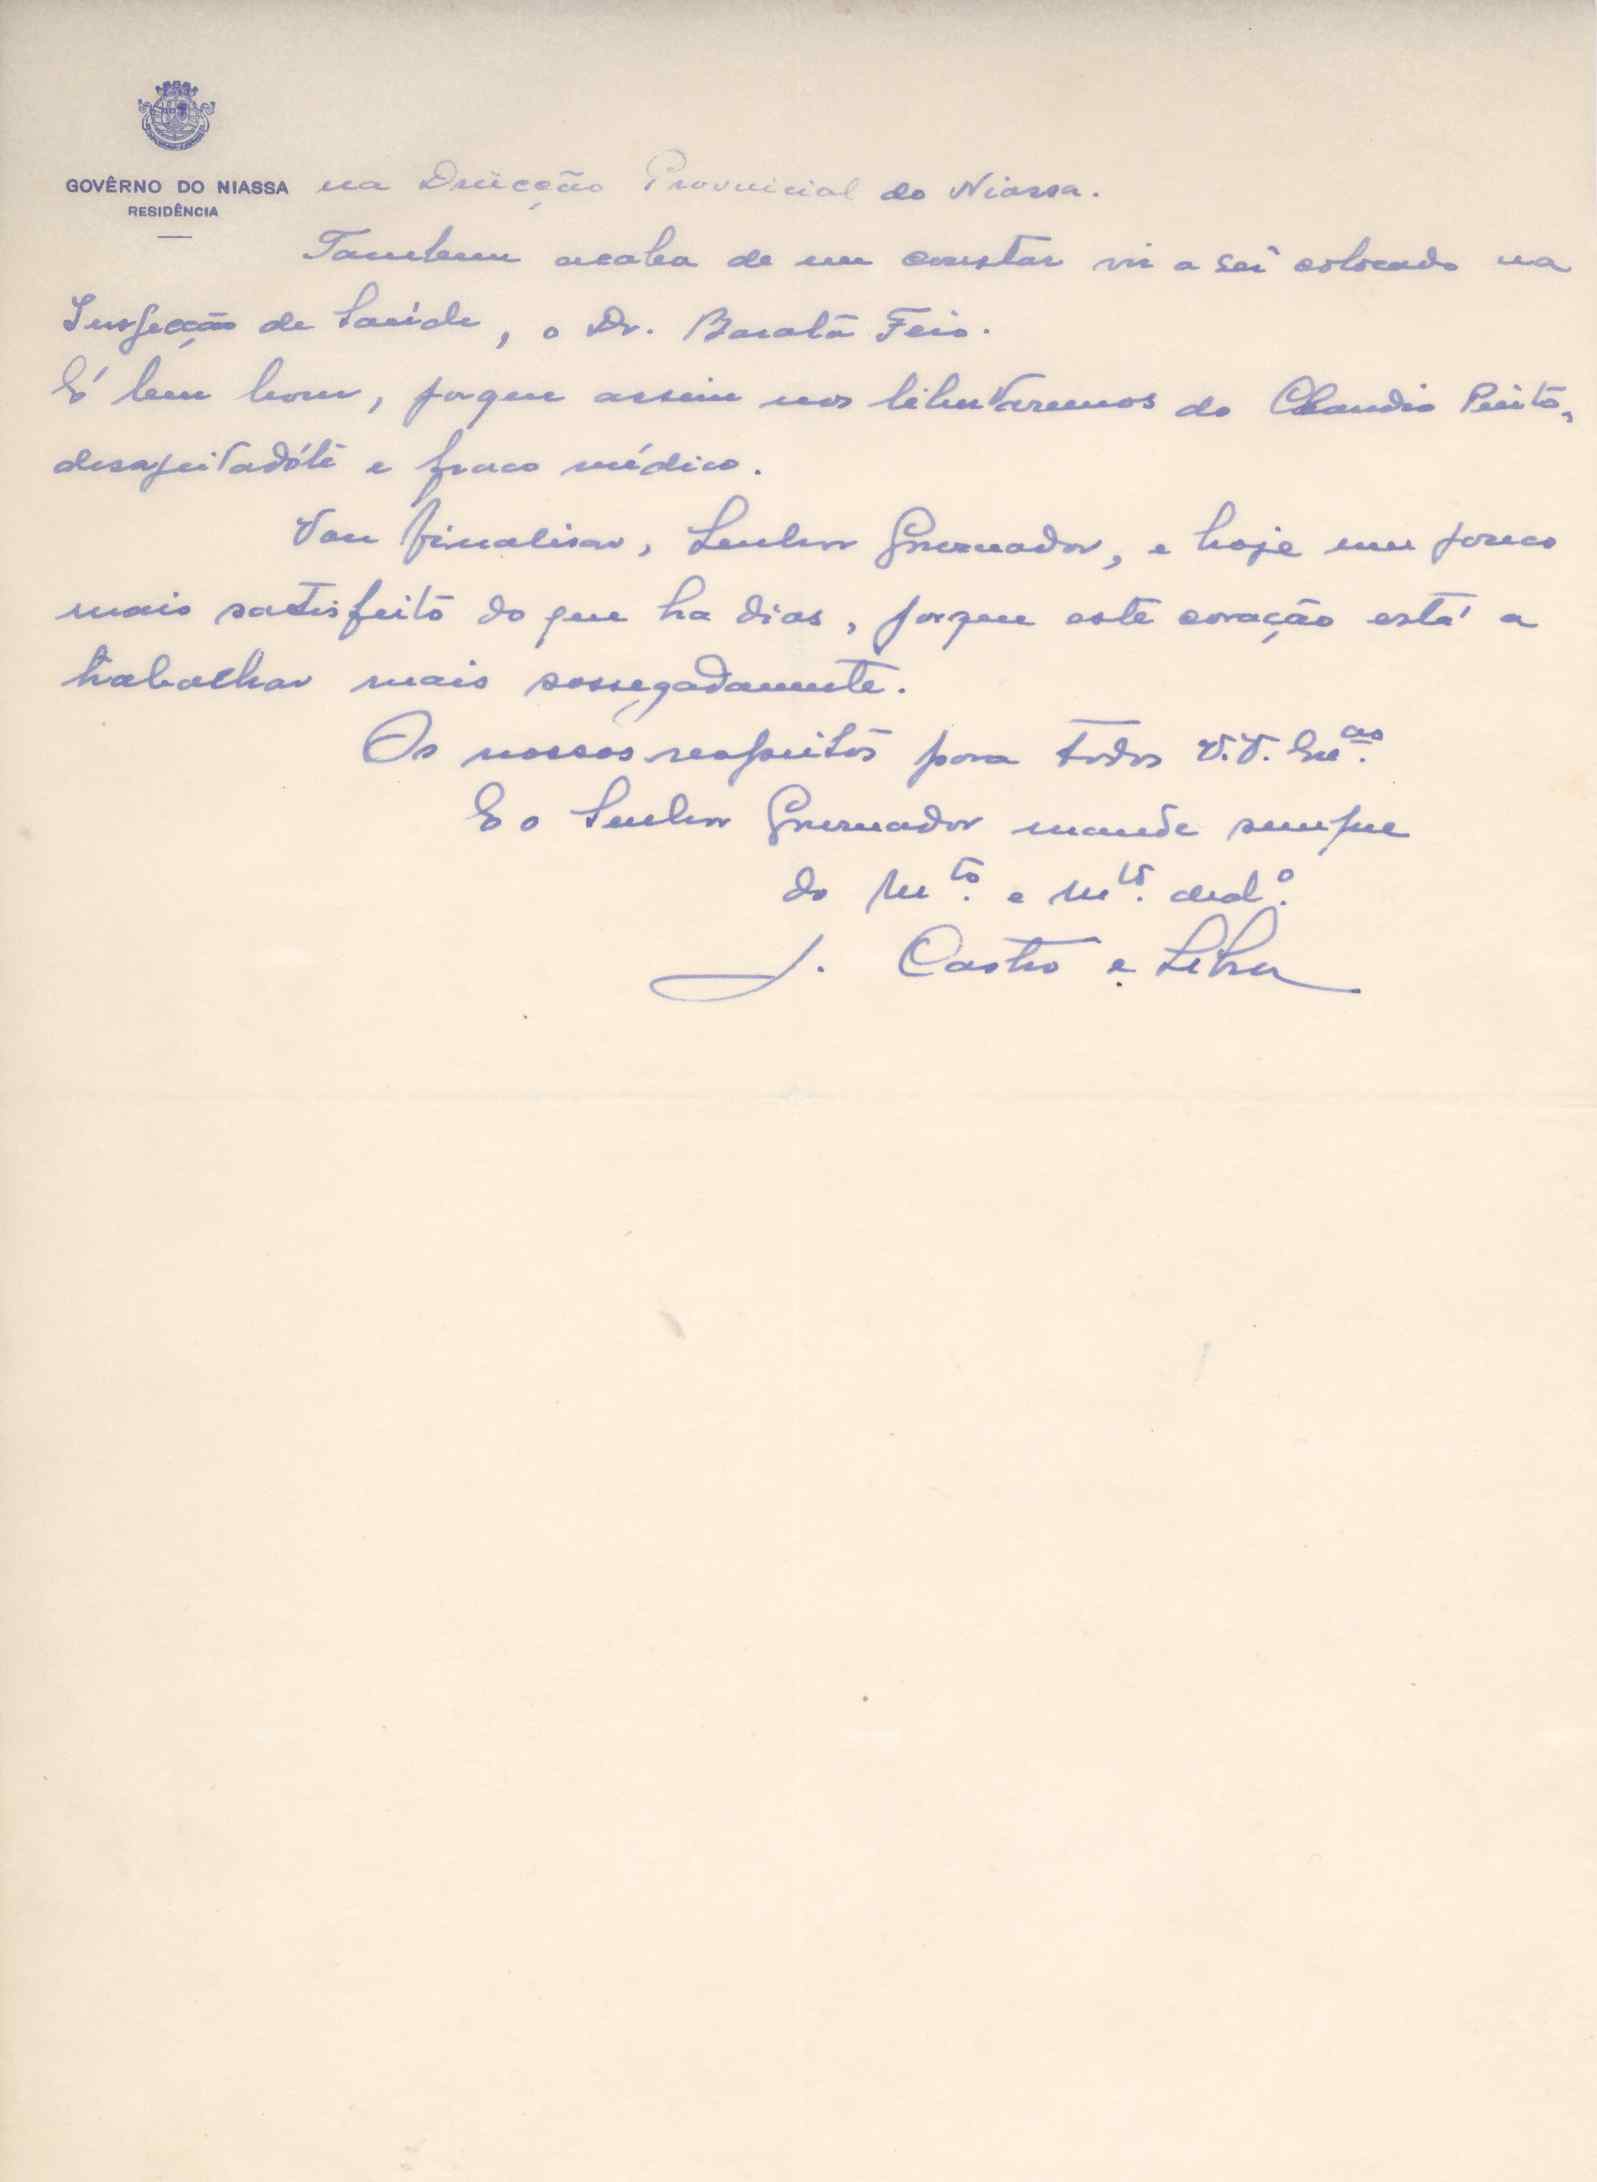 GOVÊRNO DO NIASSA
RESIDÊNCIA
na Direcção Provincial do Niassa.
Tambem acaba de me constar vir a ser colocado na
Inspecção de Saúde, o Dr. Barata Feio.
É bem bom, porque assim nos libertaremos do Claudio Pinto,
desajeitadóte e fraco médico.
Vou finalisar, Senhor Governador, e hoje um pouco
mais satisfeito do que ha dias, porque este coração está a
trabalhar mais sossegadamente.
Os nossos respeitos para todos V.V. Exᵃˢ.
E o Senhor Governador mande sempre
do Mᵗᵒ. e Mᵗᵒ. dedº.
J. Castro e Silva